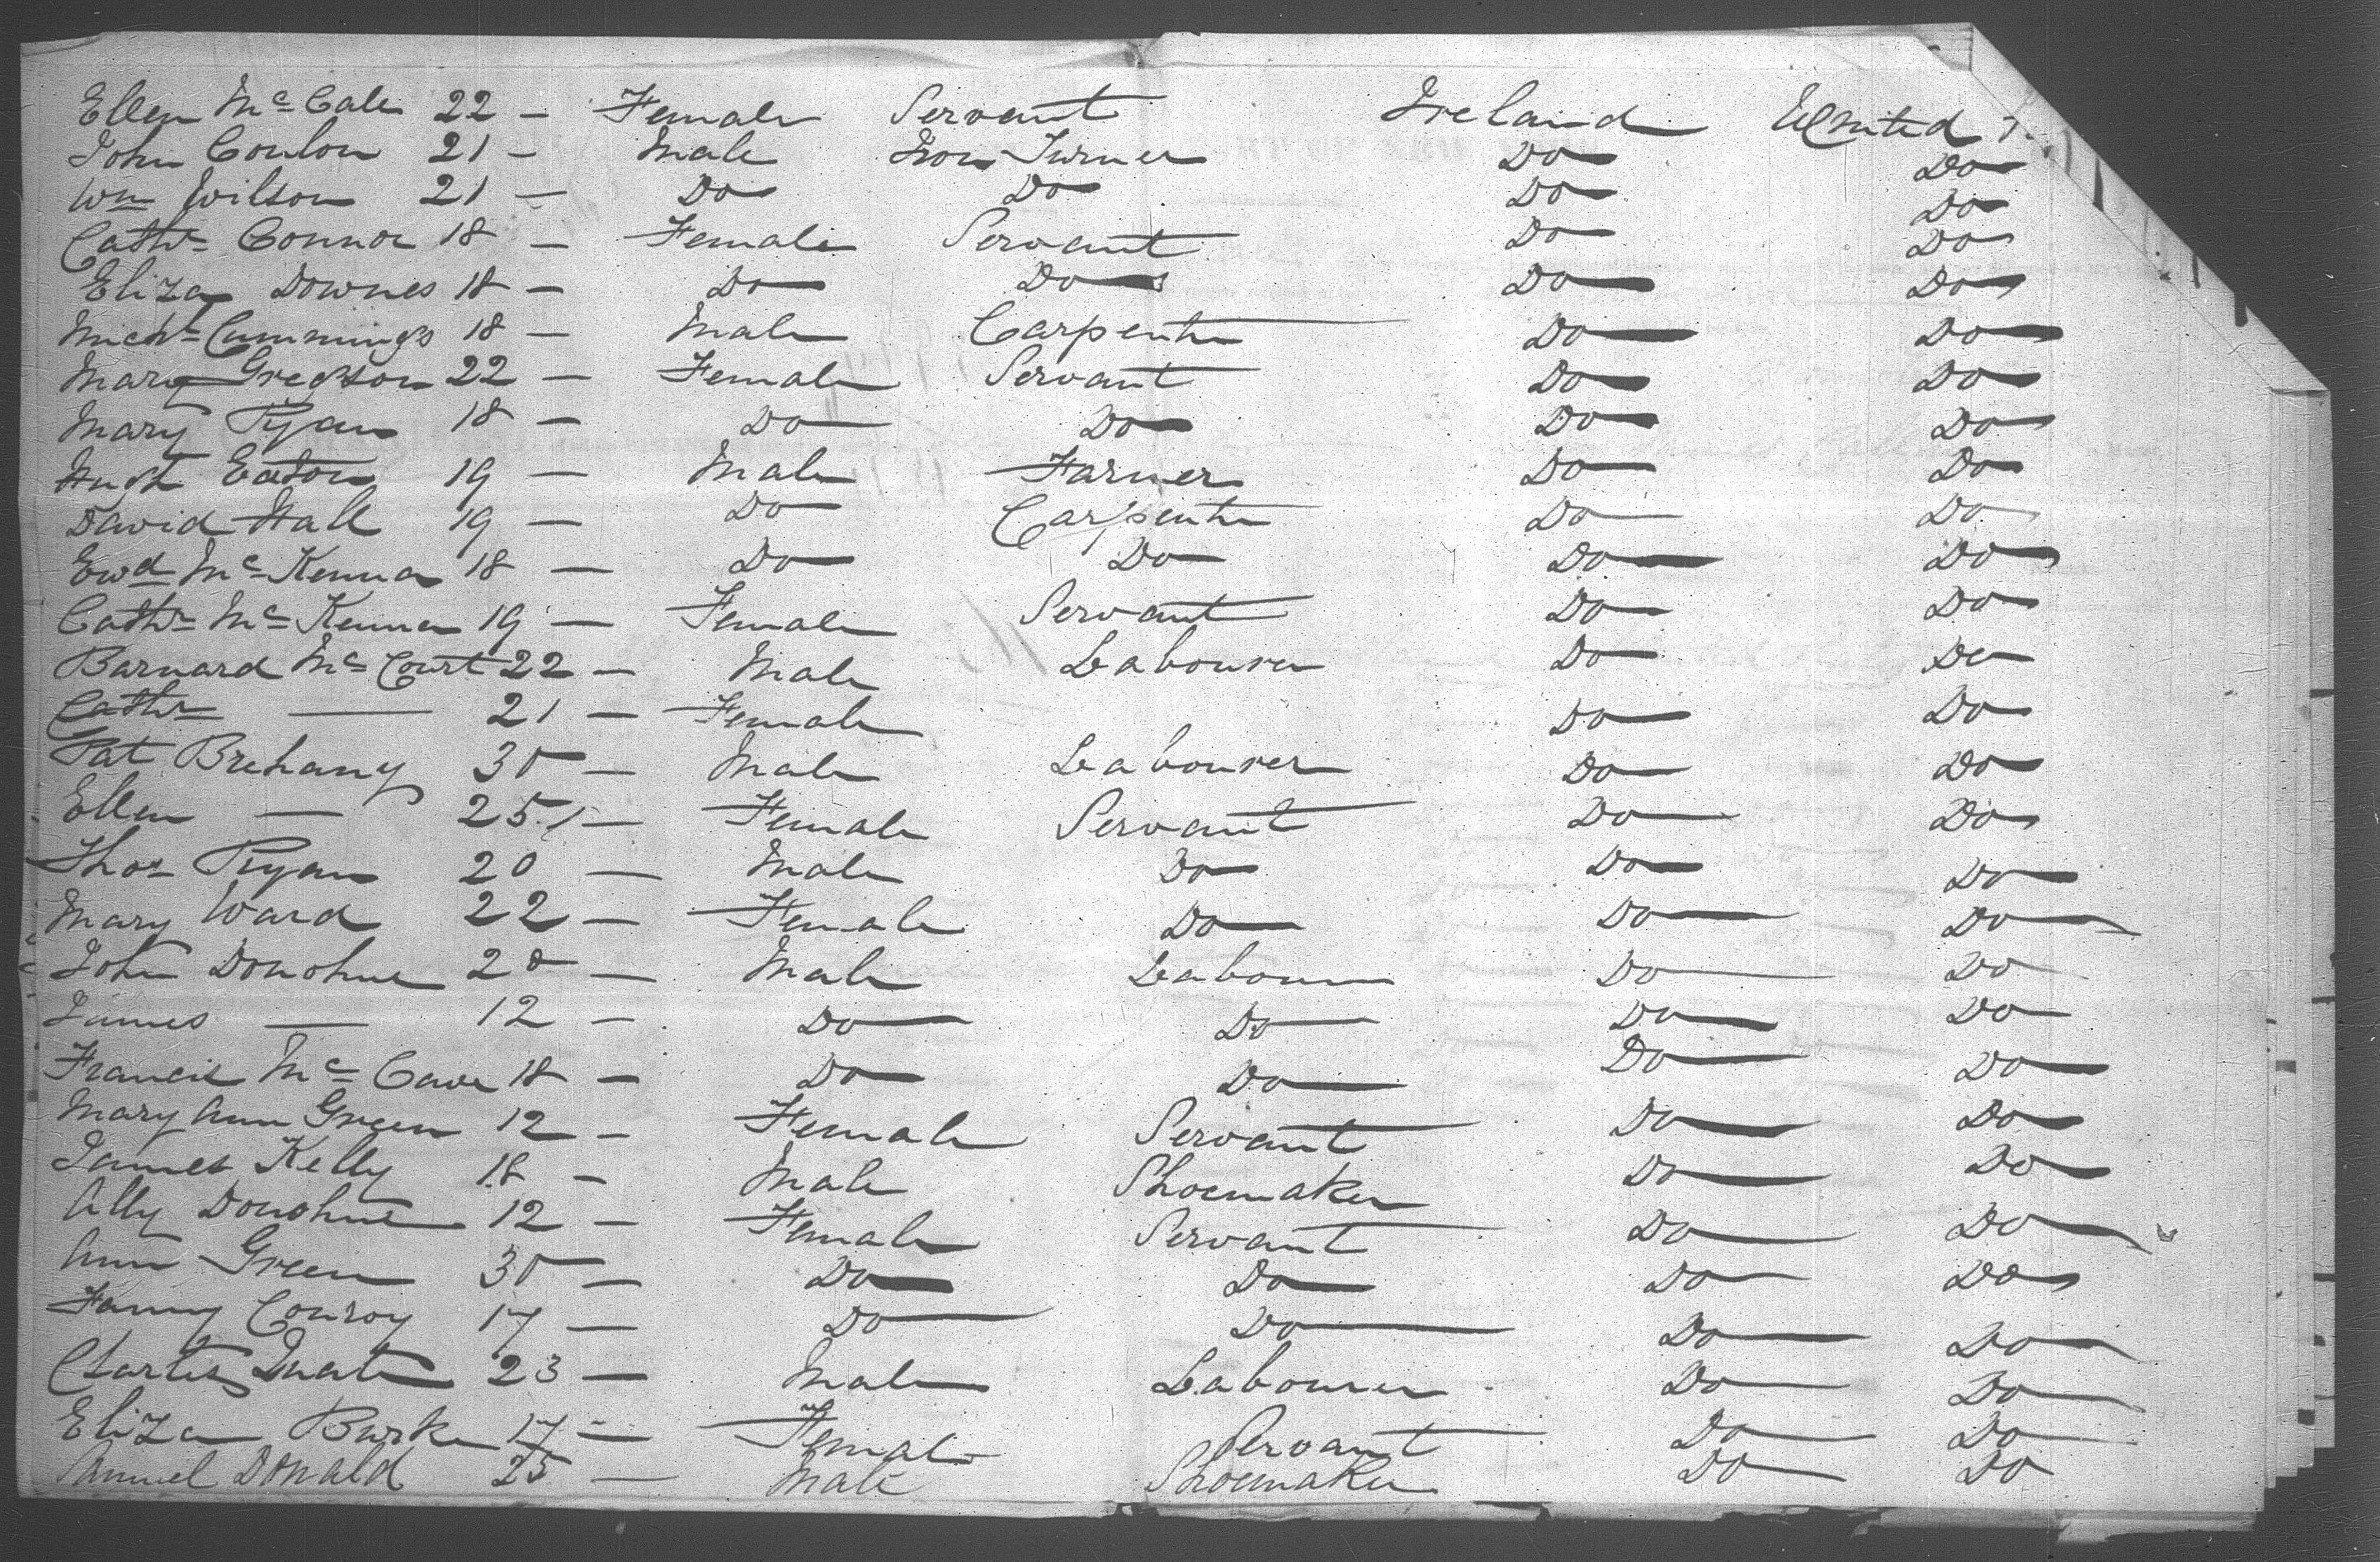 Ellen Mc Cale 22 — Female Servant Ireland United
John Conlon 21 — Male Iron Turner Do Do
Wm Wilson 21 — Do Do Do Do
Cathr Connor 18 — Female Servant Do Do
Eliza Downes 18 — Do Do Do Do
Michl Cummings 18 — Male Carpenter Do Do
Mary Gregson 22 — Female Servant Do Do
Mary Ryan 18 — Do Do Do Do
Hugh Eaton 19 — Male Farmer Do Do
David Hall 19 — Do Carpenter Do Do
Ewd Mc Kenna 18 — Do Do Do Do
Cathr Mc Kenna 19 — Female Servant Do Do
Barnard Mc Court 22 — Male Labourer Do Do
Cathr — 21 — Female Do Do
Pat Brehany 30 — Male Labourer Do Do
Ellen — 25 — Female Servant Do Do
Thos Ryan 20 — Male Do Do Do
Mary Ward 22 — Female Do Do Do
John Donohue 20 — Male Labourer Do Do
James — 12 — Do Do Do Do
Francis Mc Cave 18 — Do Do Do Do
Mary Ann Green 12 — Female Servant Do Do
James Kelly 18 — Male Shoemaker Do Do
Ally Donohue 12 — Female Servant Do Do
Ann Green 30 — Do Do Do Do
Fanny Conroy 17 — Do Do Do Do
Charles 23 — Male Labourer Do Do
Eliza Burke 17 — Female Servant Do Do
Samuel Donald 25 — Male Shoemaker Do Do